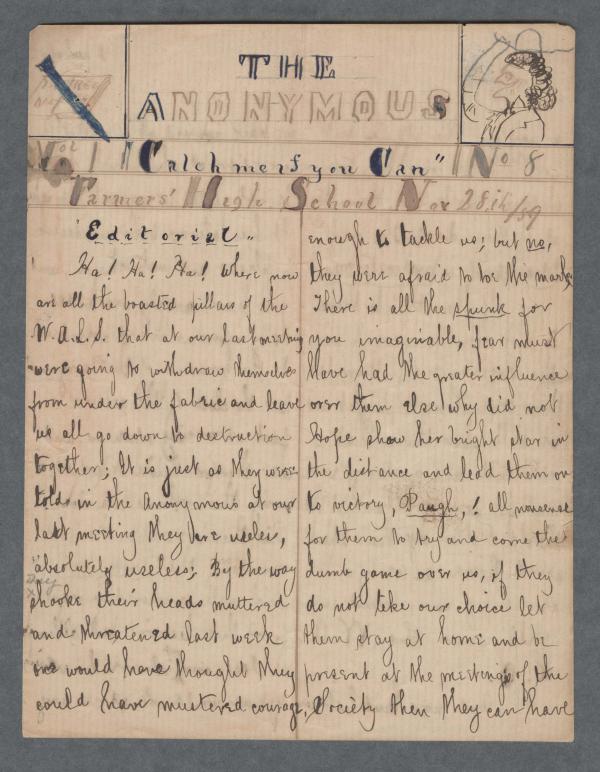 THE
ANONYMOUS
Vol 1 "Catch me if you Can" No 8
Farmers' High School Nov 28th/59
"Editorial"
Ha! Ha! Ha! Where now
are all the boasted pillars of the
W.A.L.S. that at our last meeting
were going to withdraw themselves
from under the fabric and leave
us all go down to destruction
together; It is just as they were
told in the Anonymous at our
last meeting they are useles,
absolutely useless; By the way
they
shooke their heads muttered
and threatened last week
one would have thought they
could have mustered courage,
enough to tackle us; but no,
they were afraid to toe the mark
There is all the spunk for
you imaginable, fear must
have had the greater influence
over them else why did not
Hope show her bright star in
the distance and lead them on
to victory, Paugh,! all nonsense
for them to try and come the
dumb game over us, if they
do not like our choice let
them stay at home and be
present at the meetings of the
Society then they can have